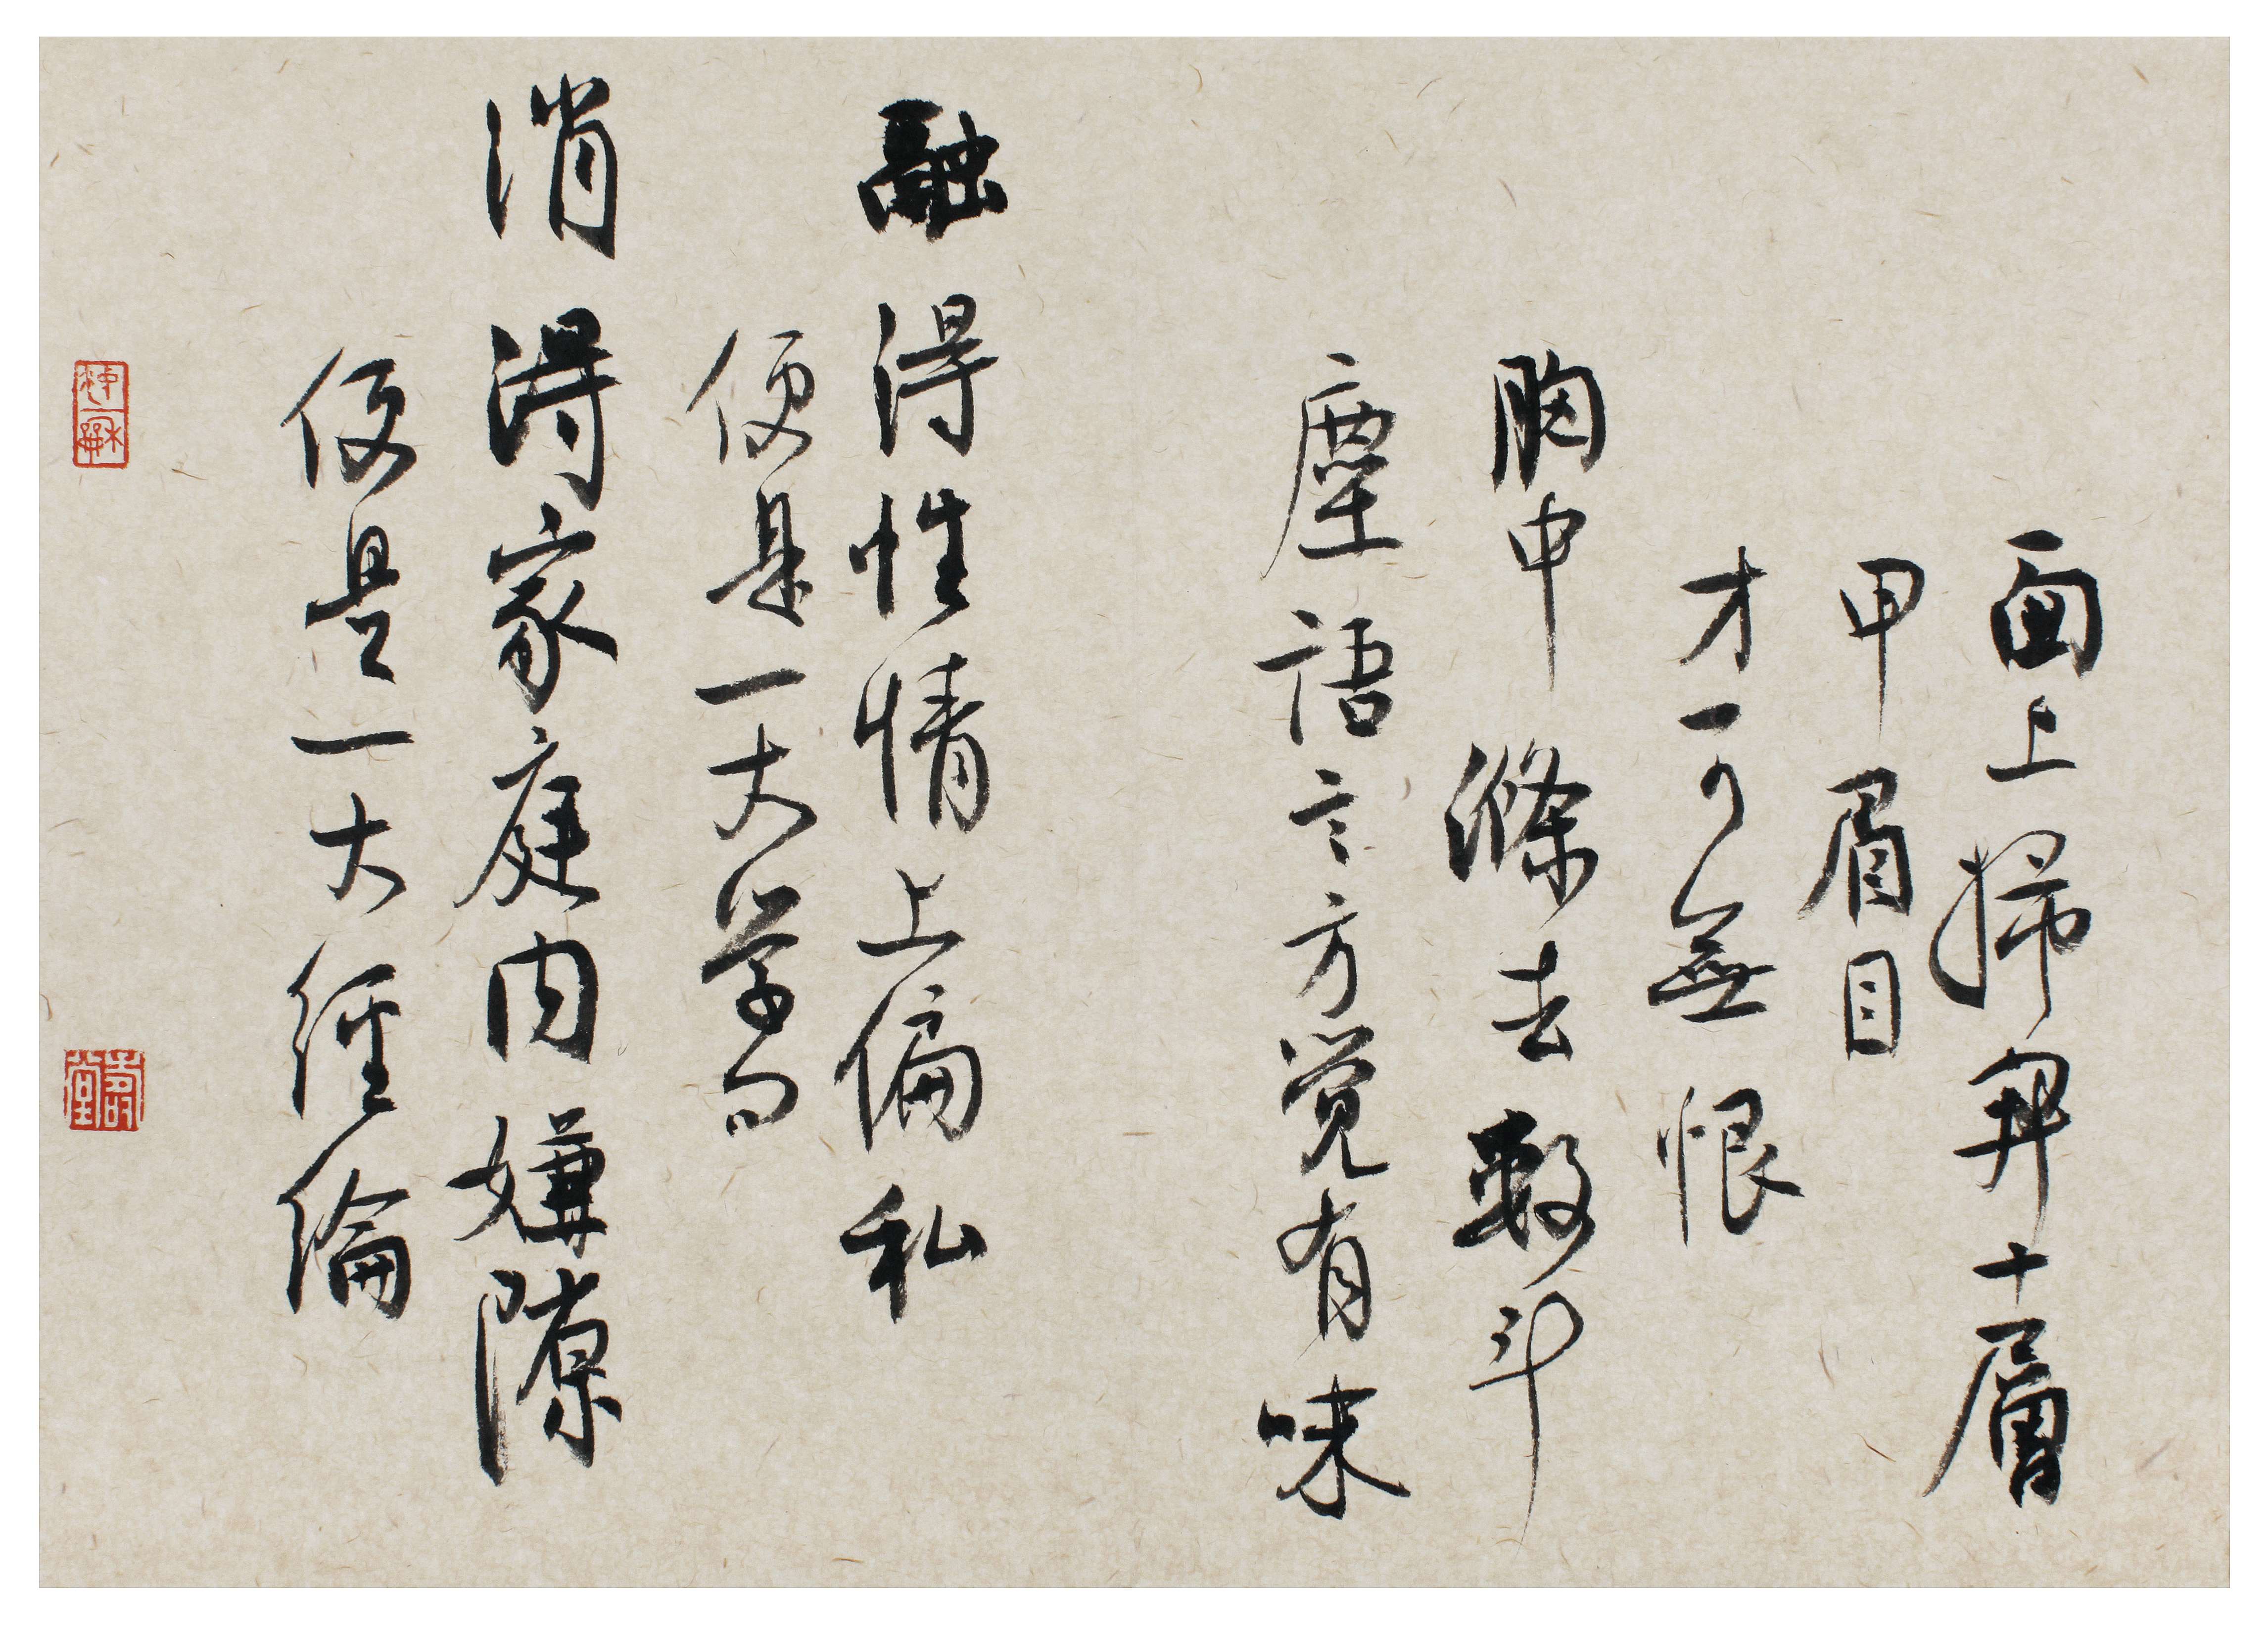 面上掃開十層
甲眉目
才可無恨
胸中滌去數斗
塵語言方觉有味
融得性情上偏私
便是一大学問
消得家庭内嫌隙
便是一大經綸